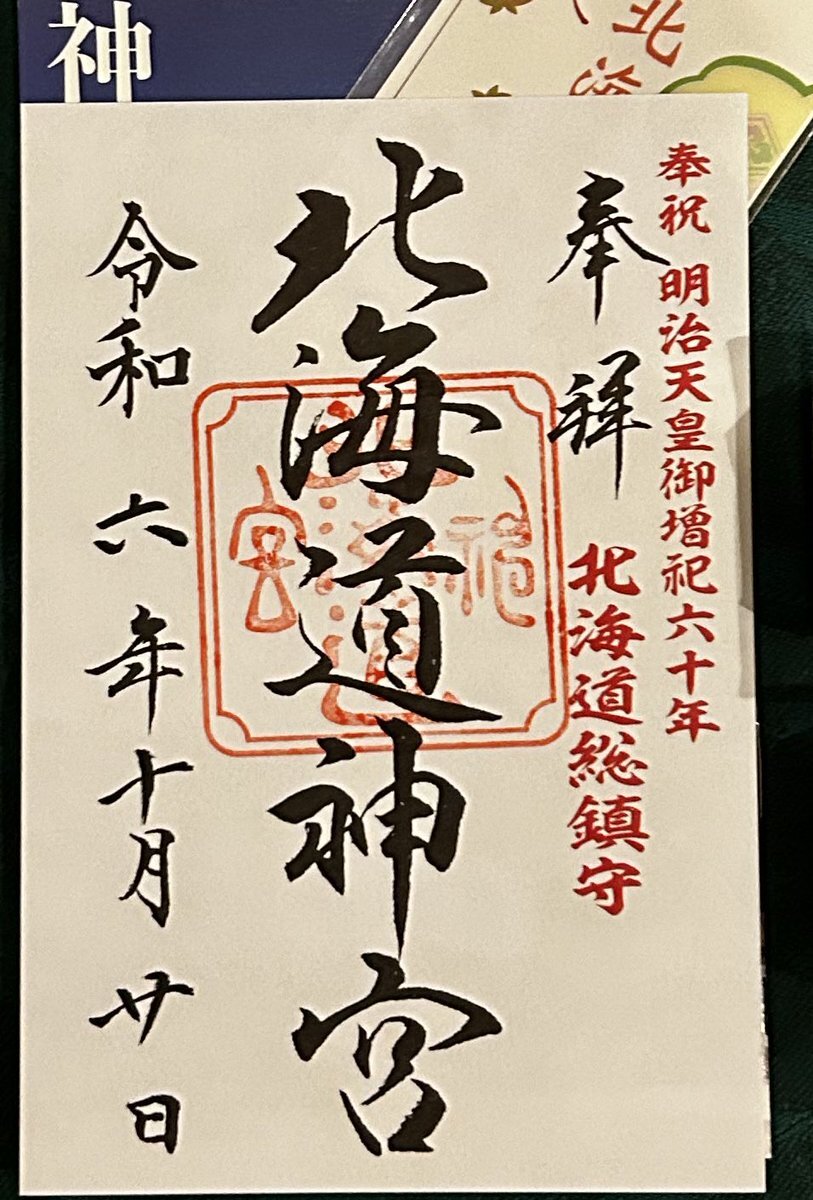 神
北海
奉祝 明治天皇御増祀六十年
北海道総鎮守
奉拝
北海道神宮
令和六年十月廿日